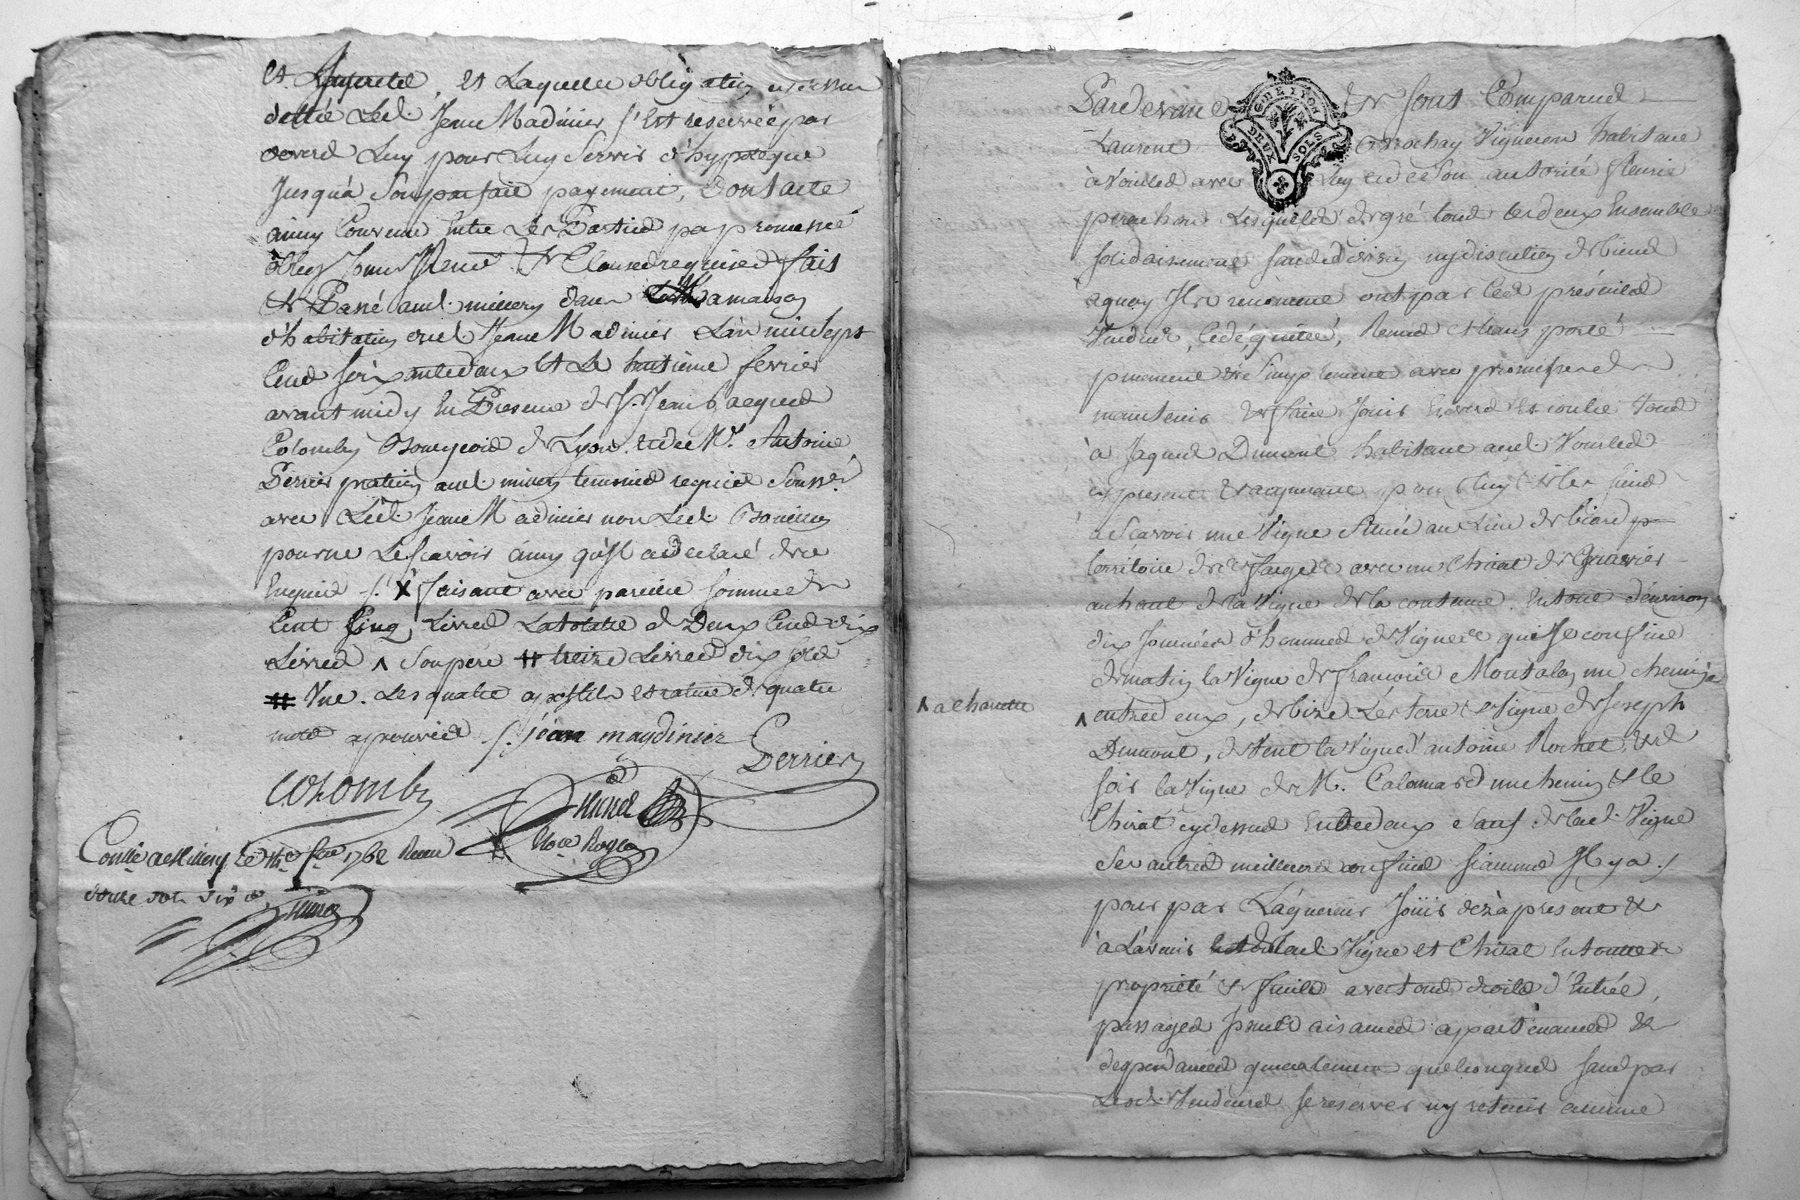 et Laquelle obligation
Led. Jean Madinier s'est reservée par
devers Luy pour Luy Servir d'hypoteque
Jusqu'a Son parfait payement, Dont acte
ainsy Convenu Entre Les Parties par promesse
oblig. Soum. Renon. & Clauses requises fait
& Passé aud. millery dans La maison
d'habitation dud. Jean Madinier L'an mil sept
Cend soixante deux Et Le huitieme fevrier
avant midy En Presence de Sr. Jean Jacques
Colomby Bourgeois de Lyon et de Mr. Antoine
Perrier praticien aud. millery temoins requis Soussés.
avec Led. Jean Madinier non Led.
pour ne Le scavoir ainsy qu'Il a declaré de ce
Enquis /. X faisant avec pareille somme de
Cent Cinq Livres La totalle de Deux Cend dix
Livres ʌ Soupéré # treize Livres dix sols
# Vne. Les quatre apostilles et rature de quatre
mots approuvés /. jean maydinier
Perrier
COLOMBy
Note Royal
Conllé a Millery, Le 1762 Receu
douze sols six d.
G. DE LYON
DEUX SOLS
Pardevant sont Comparus
Laurent Vigneron habitant
à Vourles avec Luy et de Son autorité fleurie
perachon Lesquels de gré tous les deux Ensemble
solidairement sans division ny discution de biens
aquoy Ils renoncent ont par Led. présentes
Vendu, Cedé, quitté, Remis et transporté
purement & Simplement avec promesse de
maintenir & faire Jouir Envers et contre Tous
à Jaques Dumont habitant aud. Vourles
cy present & acquerant pour Luy & les siens
a Scavoir une Vigne Située au Lieu de
territoire de avec un Chirat de Gravier
au haut de la Vigne de la contenue En tout d'environ
dix Journées d'hommes de Vigne & qui se confine
de matin la Vigne de francois Montalon un chemin
ʌ a charette
ʌ entredeux, de bize Les terre & Vigne de Joseph
Dumont, de Vent la Vigne d'antoine Rochet, & de
soir la Vigne de M. Calomard un chemin & le
Chirat cy dessus Entredeux Sauf de lad. Vigne
Ses autres meilleurs confins si aucuns Il y a /.
pour par L'aquereur Jouir dez à present &
à L'avenir de lad. Vigne et Chirat En toutte
propriété & fruits avec tous droits d'Entrée,
passages Jssues aisances appartenances &
dependances generalement quelconques sans par
Lesd. Vendeurs se reserver ny retenir aucune